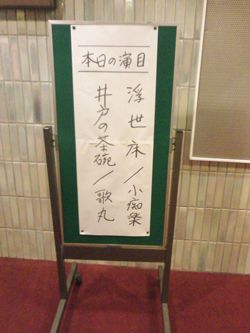 本日の演目
浮世床／小痴楽
井戸の茶碗／歌丸